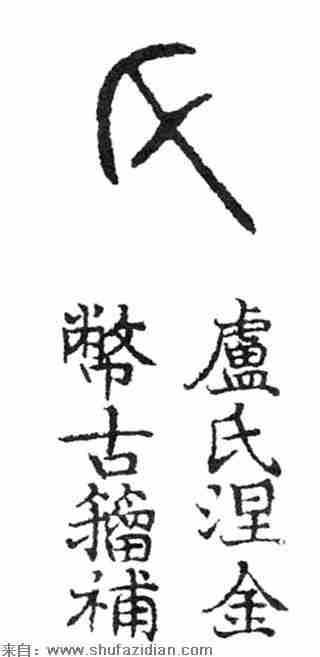 氏
盧氏涅金
幣古籀補
来自：www.shufazidian.com